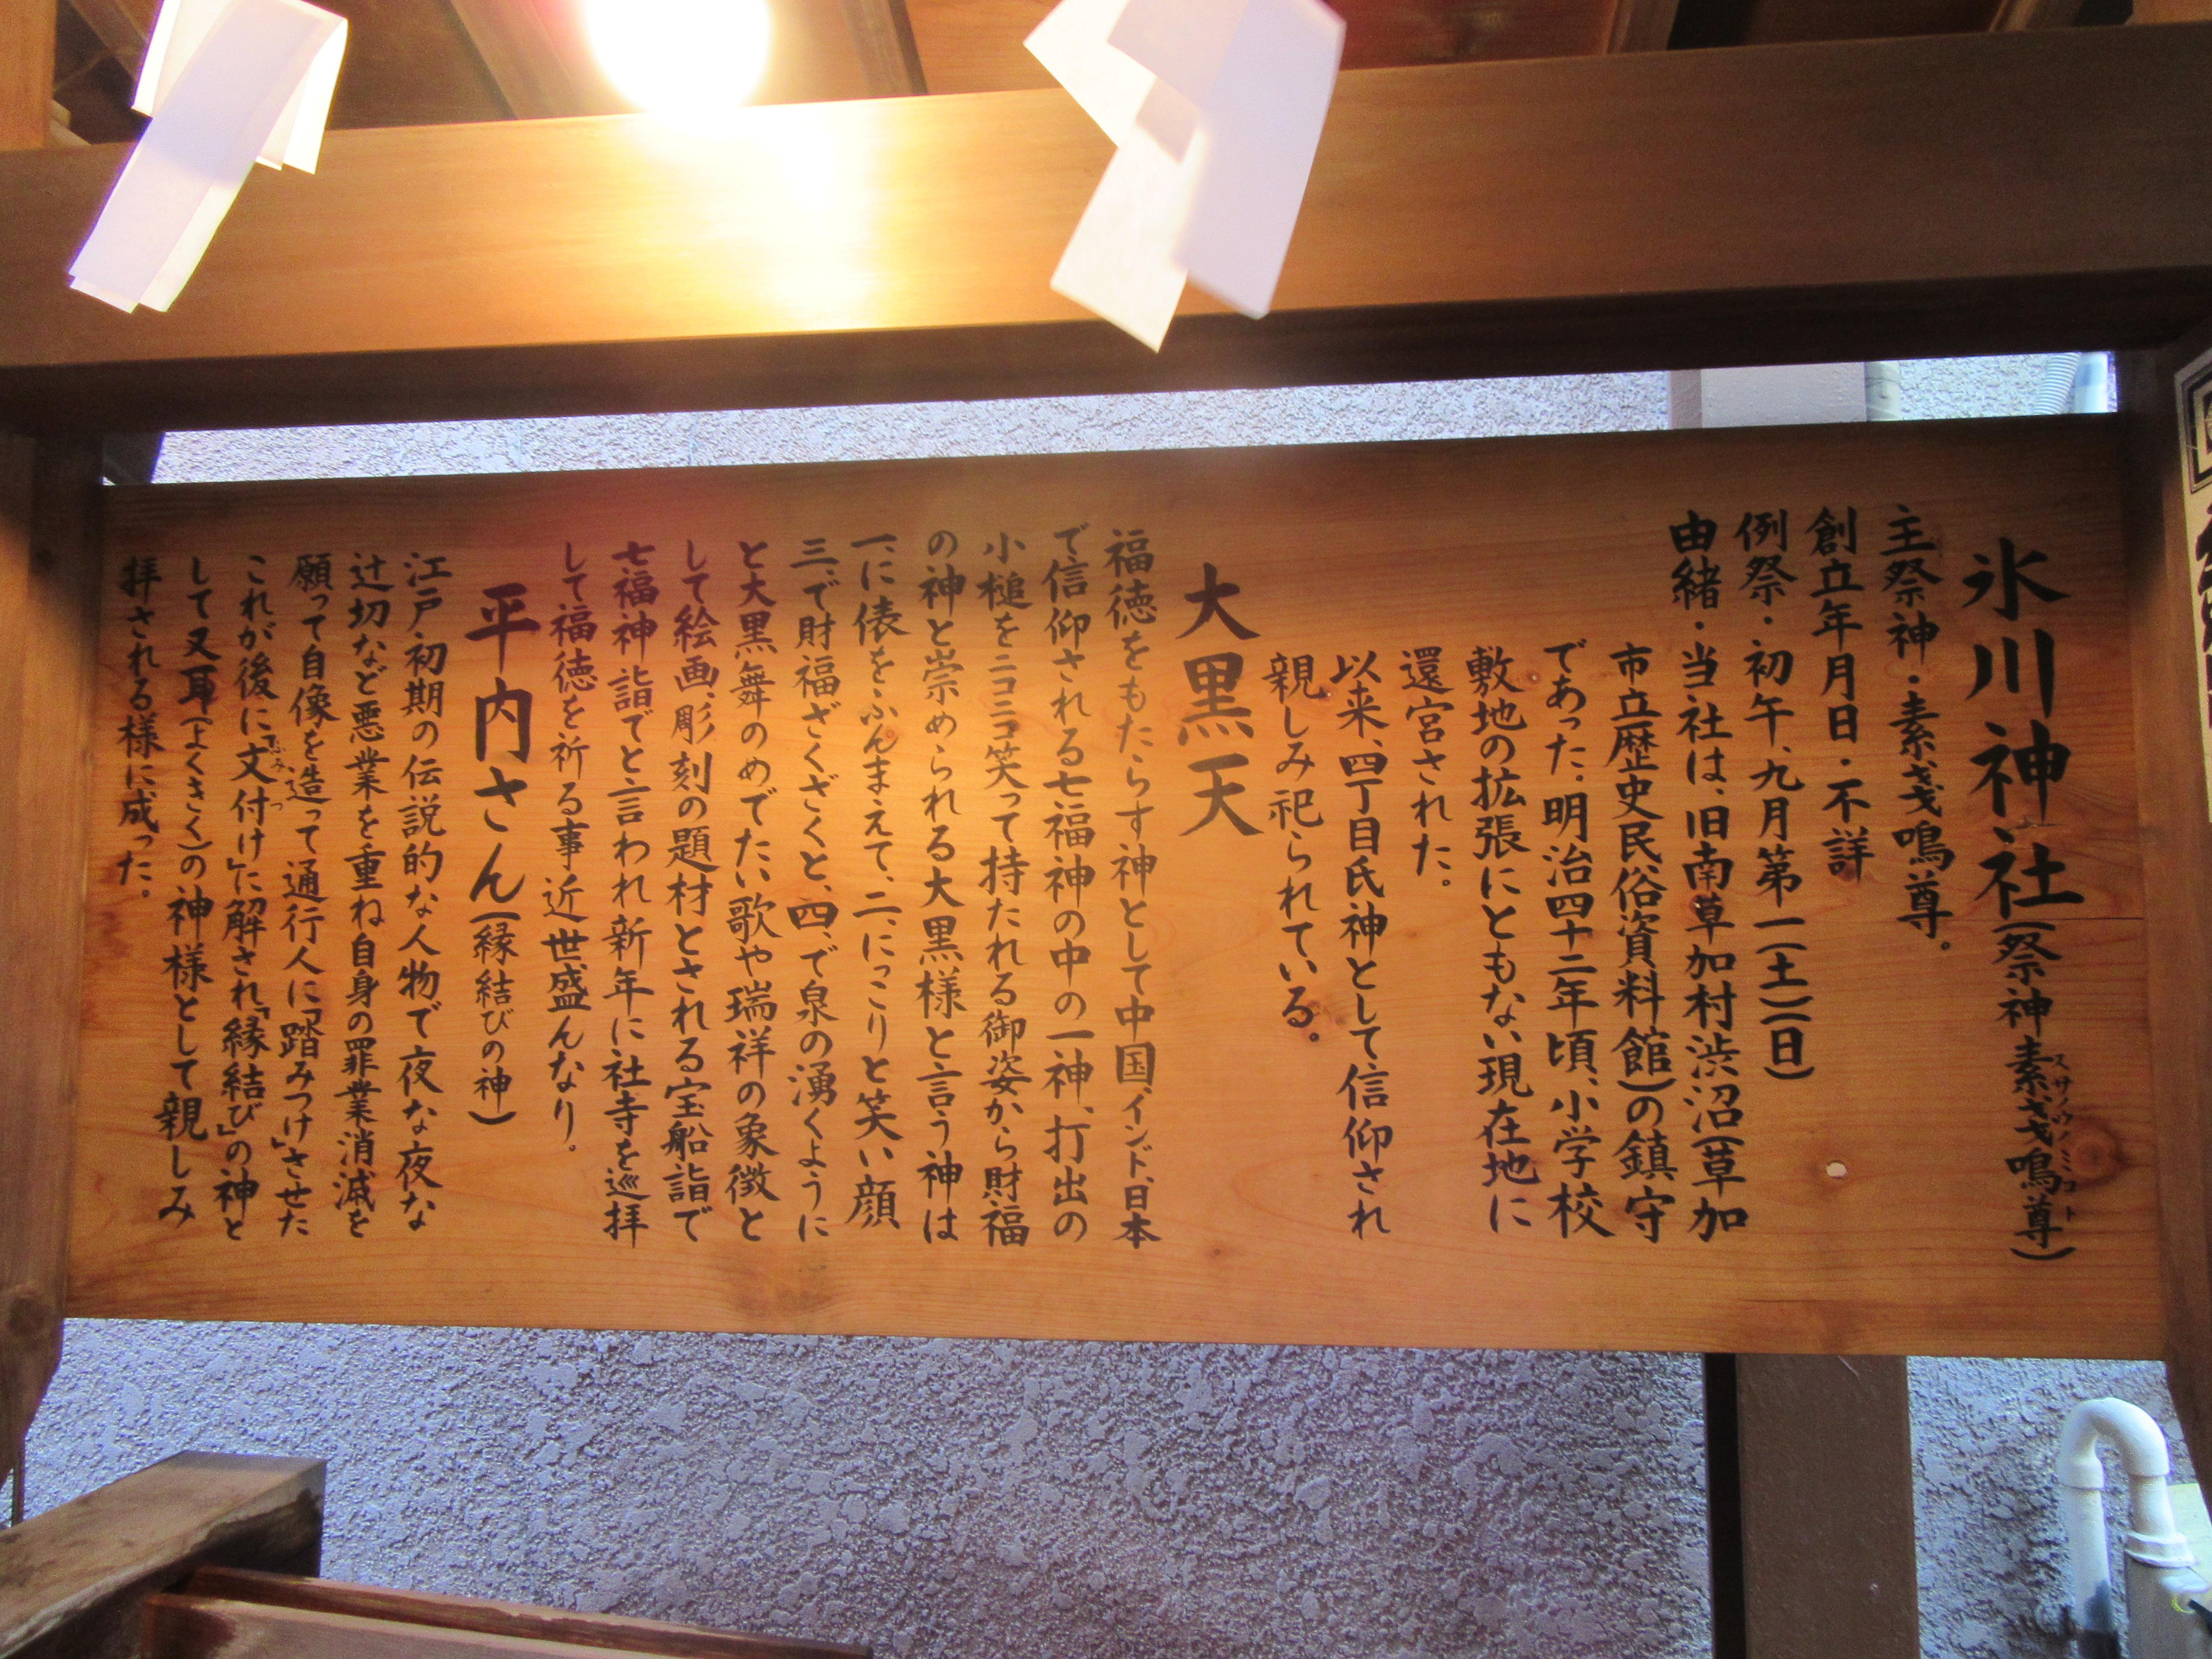 氷川神社(祭神 素戔嗚尊)
スサノウノミコト
主祭神・素戔鳴尊。
創立年月日・不詳
例祭・初午、九月第一(土)(日)
由緒・当社は、旧南草加村渋沼(草加
市立歴史民俗資料館)の鎮守
であった。明治四十二年頃、小学校
敷地の拡張にともない現在地に
還宮された。
以来、四丁目氏神として信仰され
親しみ祀られている。
大黒天
福徳をもたらす神として中国、インド、日本
で信仰される七福神の中の一神、打出の
小槌をニコニコ笑って持たれる御姿から財福
の神と崇められる大黒様と言う神は
一、に俵をふんまえて、二、にっこりと笑い顔
三、で財福ざくざくと、四、で泉の湧くように
と大黒舞のめでたい歌や瑞祥の象徴と
して絵画、彫刻の題材とされる宝船詣で
七福神詣でと言われ新年に社寺を巡拝
して福徳を祈る事近世盛んなり。
平内さん(縁結びの神)
江戸初期の伝説的な人物で夜な夜な
辻切など悪業を重ね自身の罪業消滅を
願って自像を造って通行人に「踏みつけ」させた
これが後に「文付け」に解され「縁結び」の神と
ふみつ
して又耳(よくきく)の神様として親しみ
拝される様に成った。